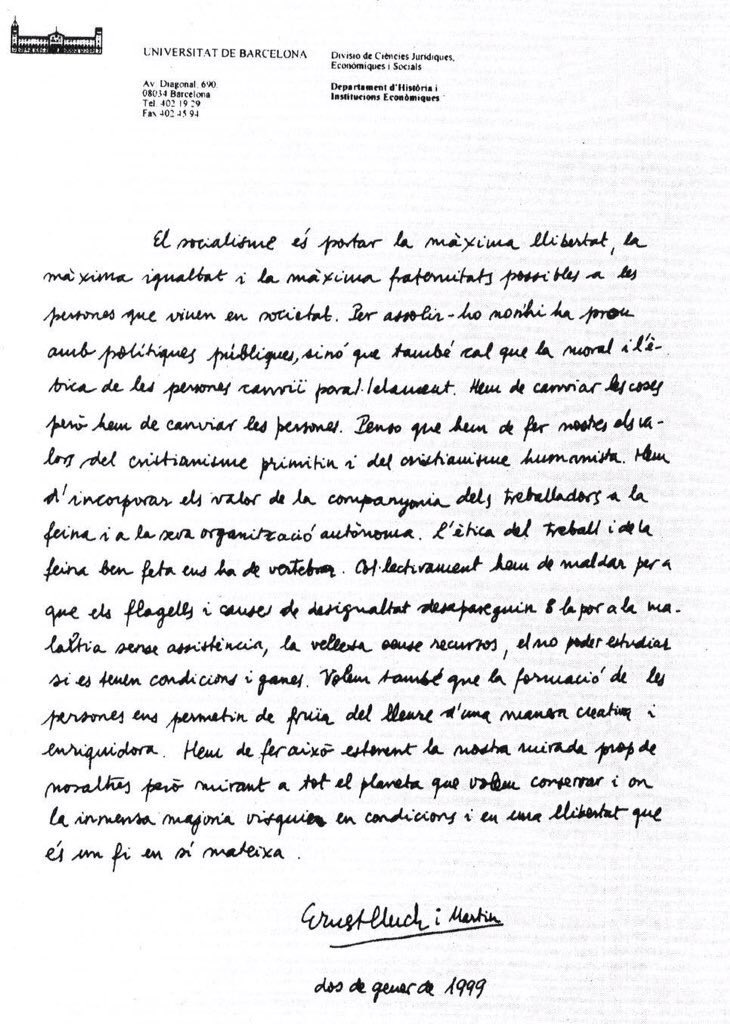 UNIVERSITAT DE BARCELONA
Divisió de Ciències Jurídiques,
Econòmiques i Socials
Av. Diagonal, 690
08034 Barcelona
Tel. 402 19 29
Fax 402 45 94
Departament d'Història i
Institucions Econòmiques
El socialisme és portar la màxima llibertat, la
màxima igualtat i la màxima fraternitats possibles a les
persones que viuen en societat. Per assolir-ho no n'hi ha prou
amb polítiques públiques, sinó que també cal que la moral i l'è-
tica de les persones canviï paral·lelament. Hem de canviar les coses
però hem de canviar les persones. Penso que hem de fer nostres els va-
lors del cristianisme primitiu i del cristianisme humanista. Hem
d'incorporar els valor de la companyonia dels treballadors a la
feina i a la seva organització autònoma. L'ètica del treball i de la
feina ben feta ens ha de vertebrar. Col·lectivament hem de maldar per a
que els flagells i causes de desigualtat desapareguin: la por a la ma-
laltia sense assistència, la vellesa sense recursos, el no poder estudiar
si es tenen condicions i ganes. Volem també que la formació de les
persones ens permetin de fruïa del lleure d'una manera creativa i
enriquidora. Hem de fer això estenent la nostra mirada prop de
nosaltres però mirant a tot el planeta que volem conservar i on
la inmensa majoria visquien en condicions i en una llibertat que
és un fi en sí mateixa.
Ernest Lluch i Martin
dos de gener de 1999